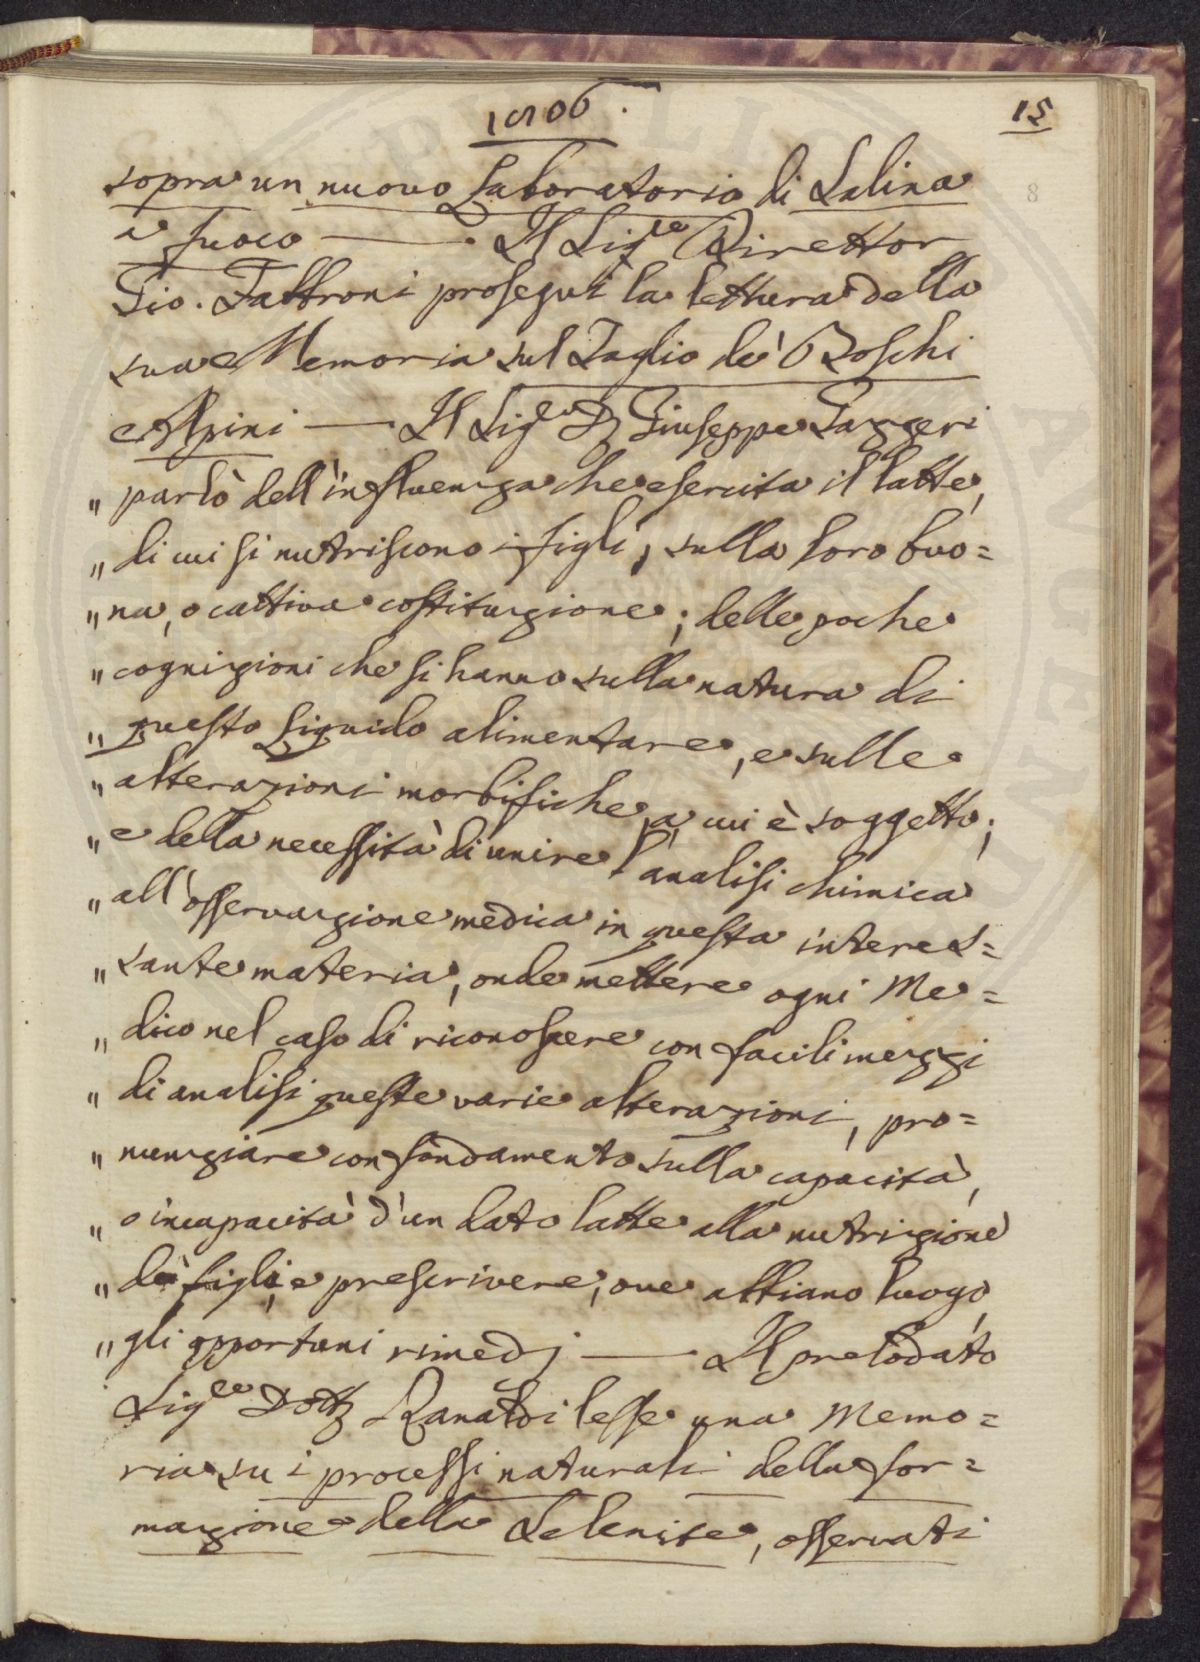 1806.
15
8
sopra un nuovo Laboratorio di Salina
a fuoco —— . Il Sig.re Direttor
Gio. Fabbroni proseguì la lettura della
sua Memoria sul Taglio de' Boschi
Alpini —— Il Sig.re D. Giuseppe Gazzeri
" parlò dell'influenza che esercita il latte,
" di cui si nutriscono i figli, sulla loro buo=
" na, o cattiva costituzione; delle poche
" cognizioni che si hanno sulla natura di
" questo Liquido alimentare, e sulle
" alterazioni morbifiche, a cui è soggetto;
" e della necessità di unire l'analisi chimica
" all'osservazione medica in questa interes=
" sante materia, onde mettere ogni Me=
" dico nel caso di riconoscere con facili mezzi
" di analisi queste varie alterazioni, pro=
" nunziare con fondamento sulla capacità,
" o incapacità d'un dato latte alla nutrizione
" de' figli, e prescrivere, ove abbiano luogo,
" gli opportuni rimedj —— Il prelodato
Sig.re Dott. Ranaldi lesse una Memo=
ria su i processi naturali della for=
mazione della Selenite, osservati